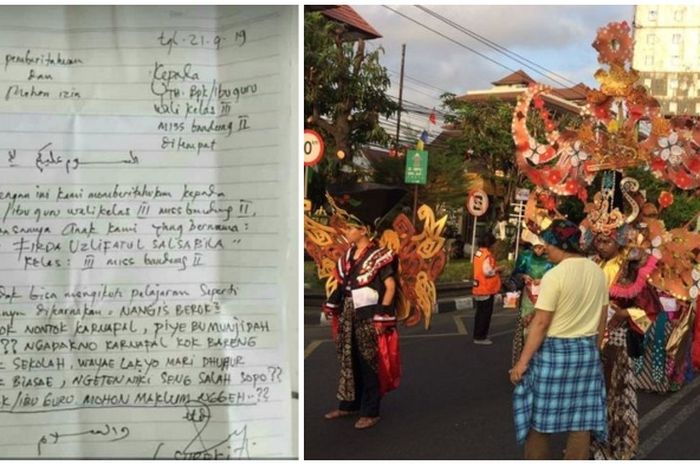 tgl-21-9-19
pemberitahuan
dan
Mohon izin
Kepada
YTH. Bpk/ibu guru
wali kelas III
MISS bandung II
Ditempat
السلام عليكم
engan ini kami memberitahukan kepada
/ibu guru wali kelas III miss bandung II,
asanya anak kami yang bernama:
FIKDA UZLIFATUL SALSABILA "
Kelas: III miss bandung II
dak bisa mengikuti pelajaran seperti
dikarnakan, NANGIS BEROK²
NONTOK KARNAFAL, PIYE BU MUNJIDAH
?? NGAPAKNO KARNAFAL KOK BARENG
SEKOLAH, WAYAE LAK YO MARI DHUHUR
BIASAE, NGETEN NIKI SENG SALAH SOPO??
k/IBU GURU MOHON MAKLUM NGGEH..??
والسلام
ttd